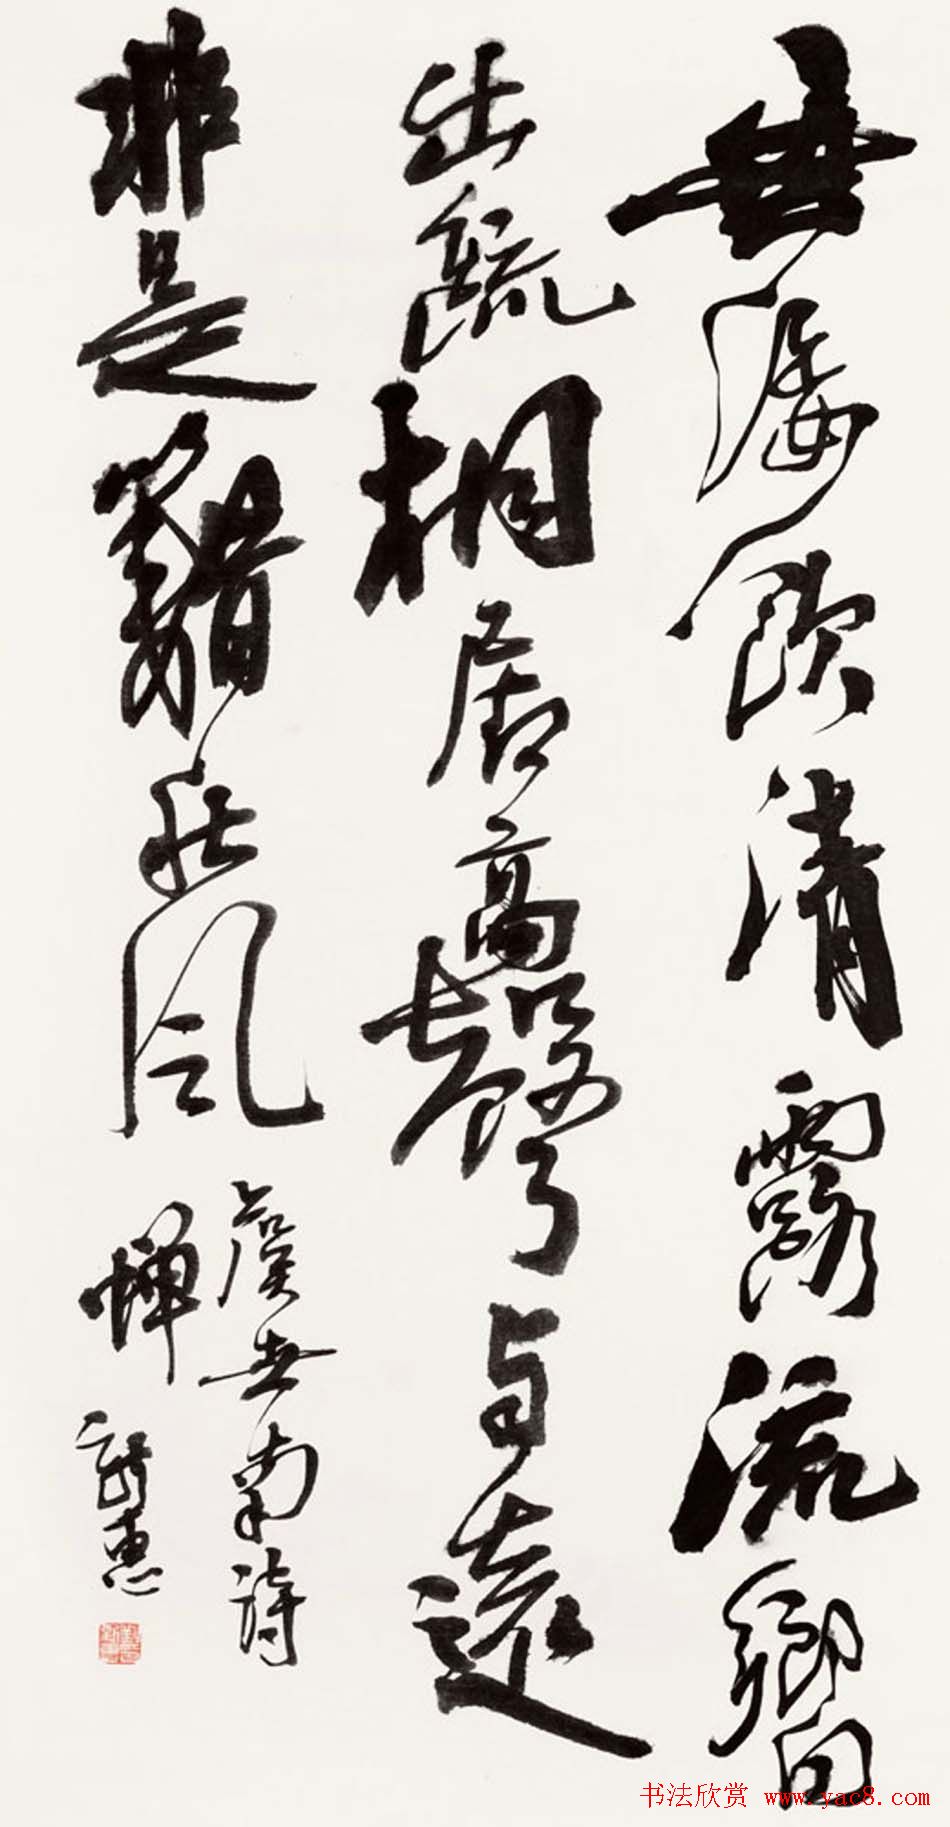 垂緌飲清露流響
出疏桐居高聲自遠
非是藉秋風
虞世南詩
蟬
书法欣赏 www.yac8.com